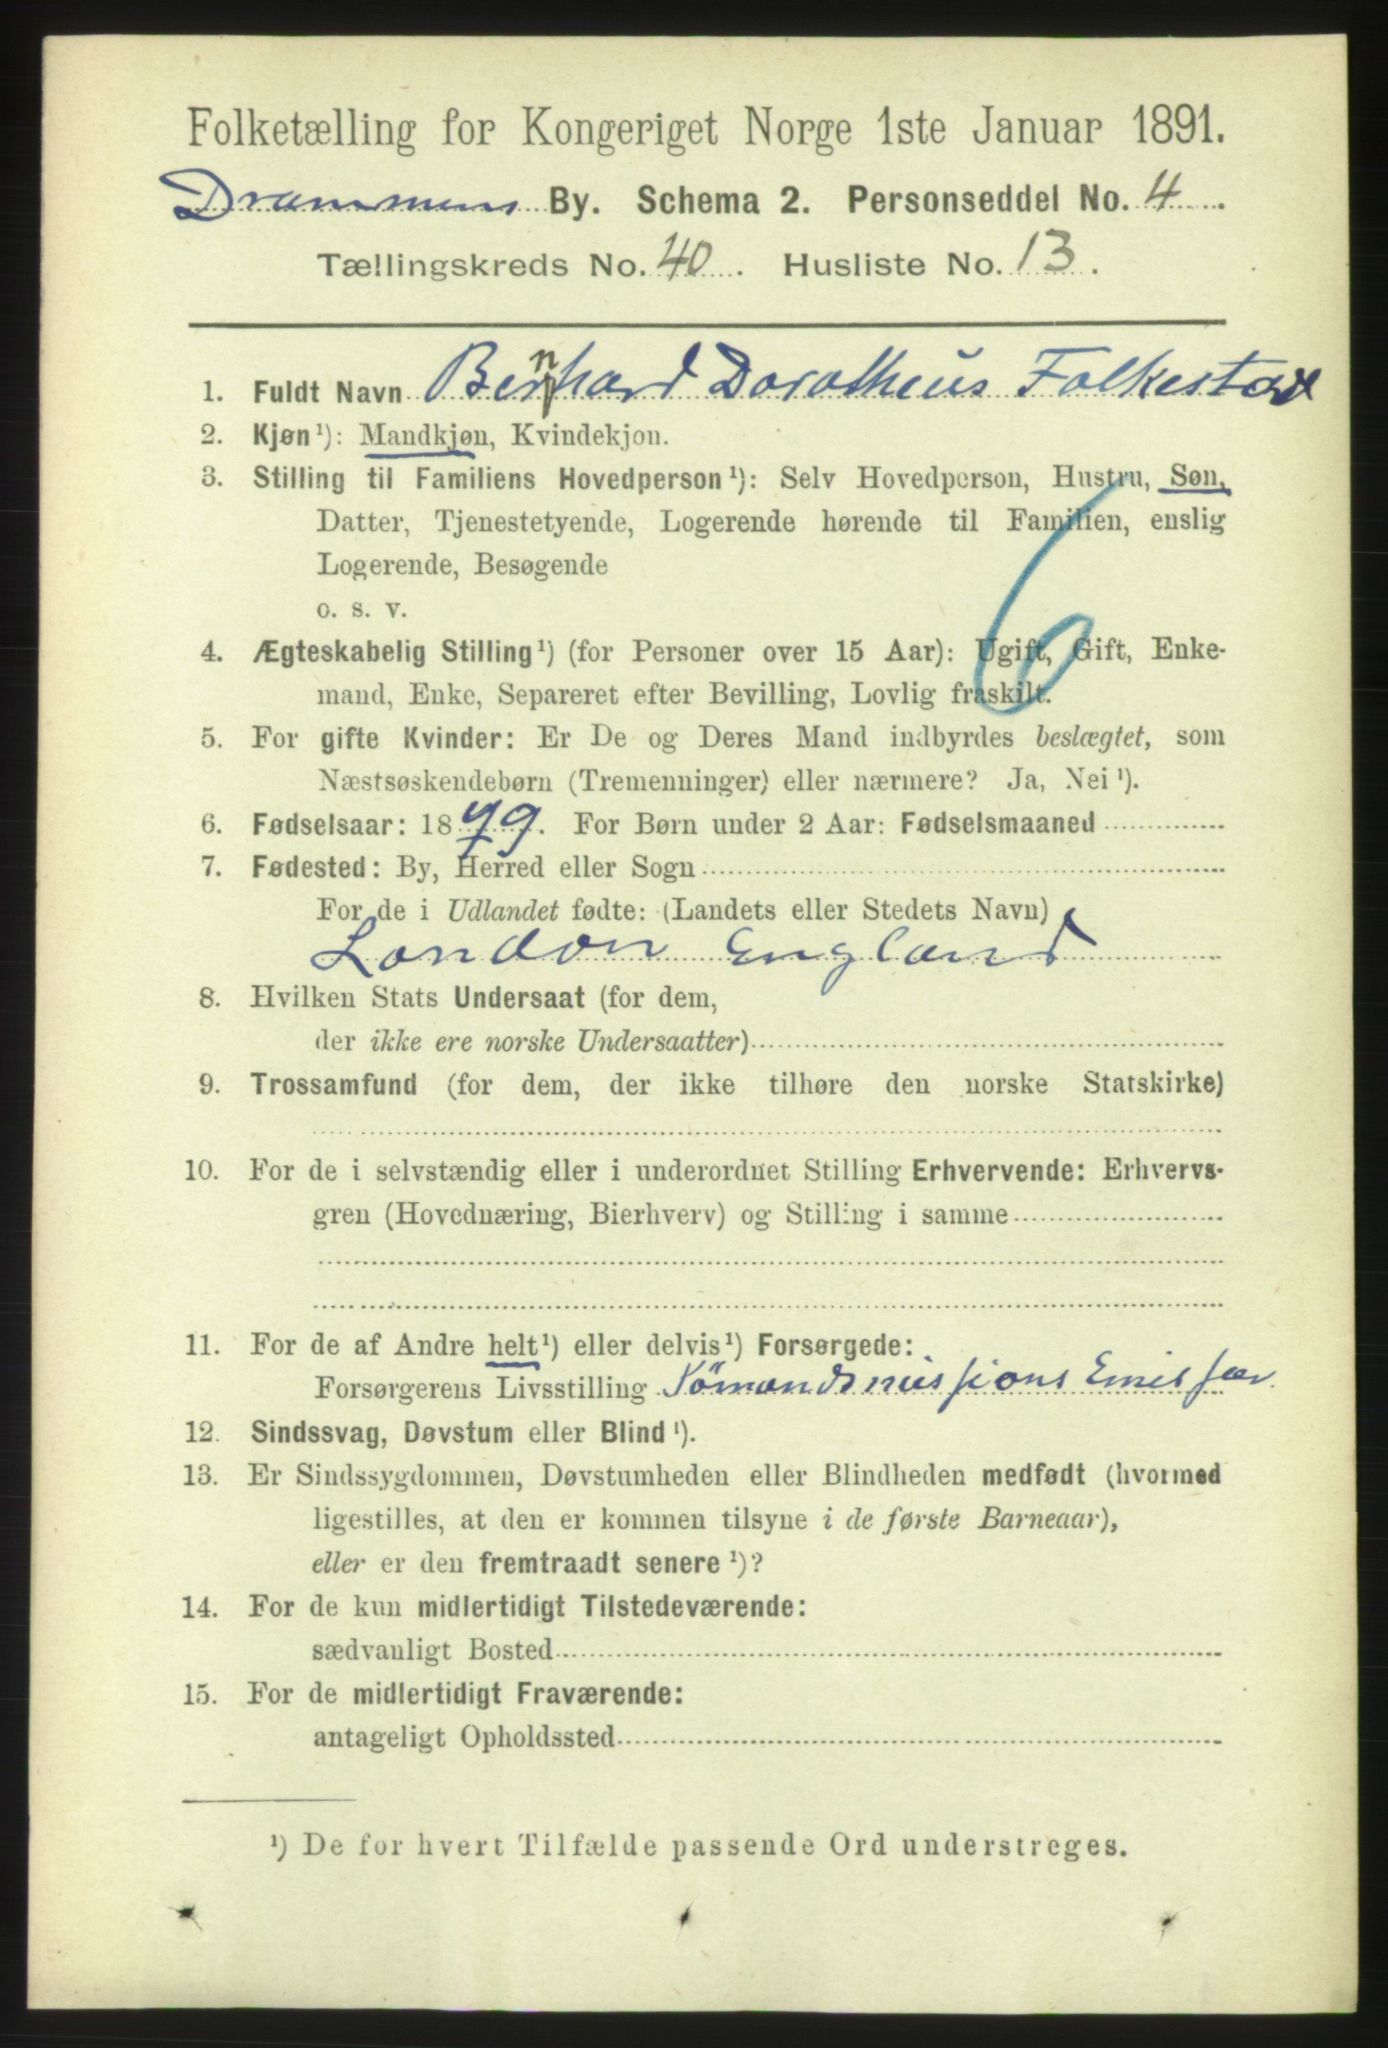 Folketælling for Kongeriget Norge 1ste Januar 1891.
Drammens By. Schema 2. Personseddel No. 4.
Tællingskreds No. 40. Husliste No. 13.
1. Fuldt Navn Bernhard Dorotheus Folkestad
2. Kjøn ¹): Mandkjøn, Kvindekjøn.
3. Stilling til Familiens Hovedperson ¹): Selv Hovedperson, Hustru, Søn,
Datter, Tjenestetyende, Logerende hørende til Familien, enslig
Logerende, Besøgende
o. s. v.
6
4. Ægteskabelig Stilling ¹) (for Personer over 15 Aar): Ugift, Gift, Enke-
mand, Enke, Separeret efter Bevilling, Lovlig fraskilt.
5. For gifte Kvinder: Er De og Deres Mand indbyrdes beslægtet, som
Næstsøskendebørn (Tremenninger) eller nærmere? Ja, Nei ¹).
6. Fødselsaar: 1879. For Børn under 2 Aar: Fødselsmaaned
7. Fødested: By, Herred eller Sogn
For de i Udlandet fødte: (Landets eller Stedets Navn)
London England
8. Hvilken Stats Undersaat (for dem,
der ikke ere norske Undersaatter)
9. Trossamfund (for dem, der ikke tilhøre den norske Statskirke)
10. For de i selvstændig eller i underordnet Stilling Erhvervende: Erhvervs-
gren (Hovednæring, Bierhverv) og Stilling i samme
11. For de af Andre helt ¹) eller delvis ¹) Forsørgede:
Forsørgerens Livsstilling Sömandsmissions Emissær
12. Sindssvag, Døvstum eller Blind ¹).
13. Er Sindssygdommen, Døvstumheden eller Blindheden medfødt (hvormed
ligestilles, at den er kommen tilsyne i de første Barneaar),
eller er den fremtraadt senere ¹)?
14. For de kun midlertidigt Tilstedeværende:
sædvanligt Bosted
15. For de midlertidigt Fraværende:
antageligt Opholdssted
¹) De for hvert Tilfælde passende Ord understreges.